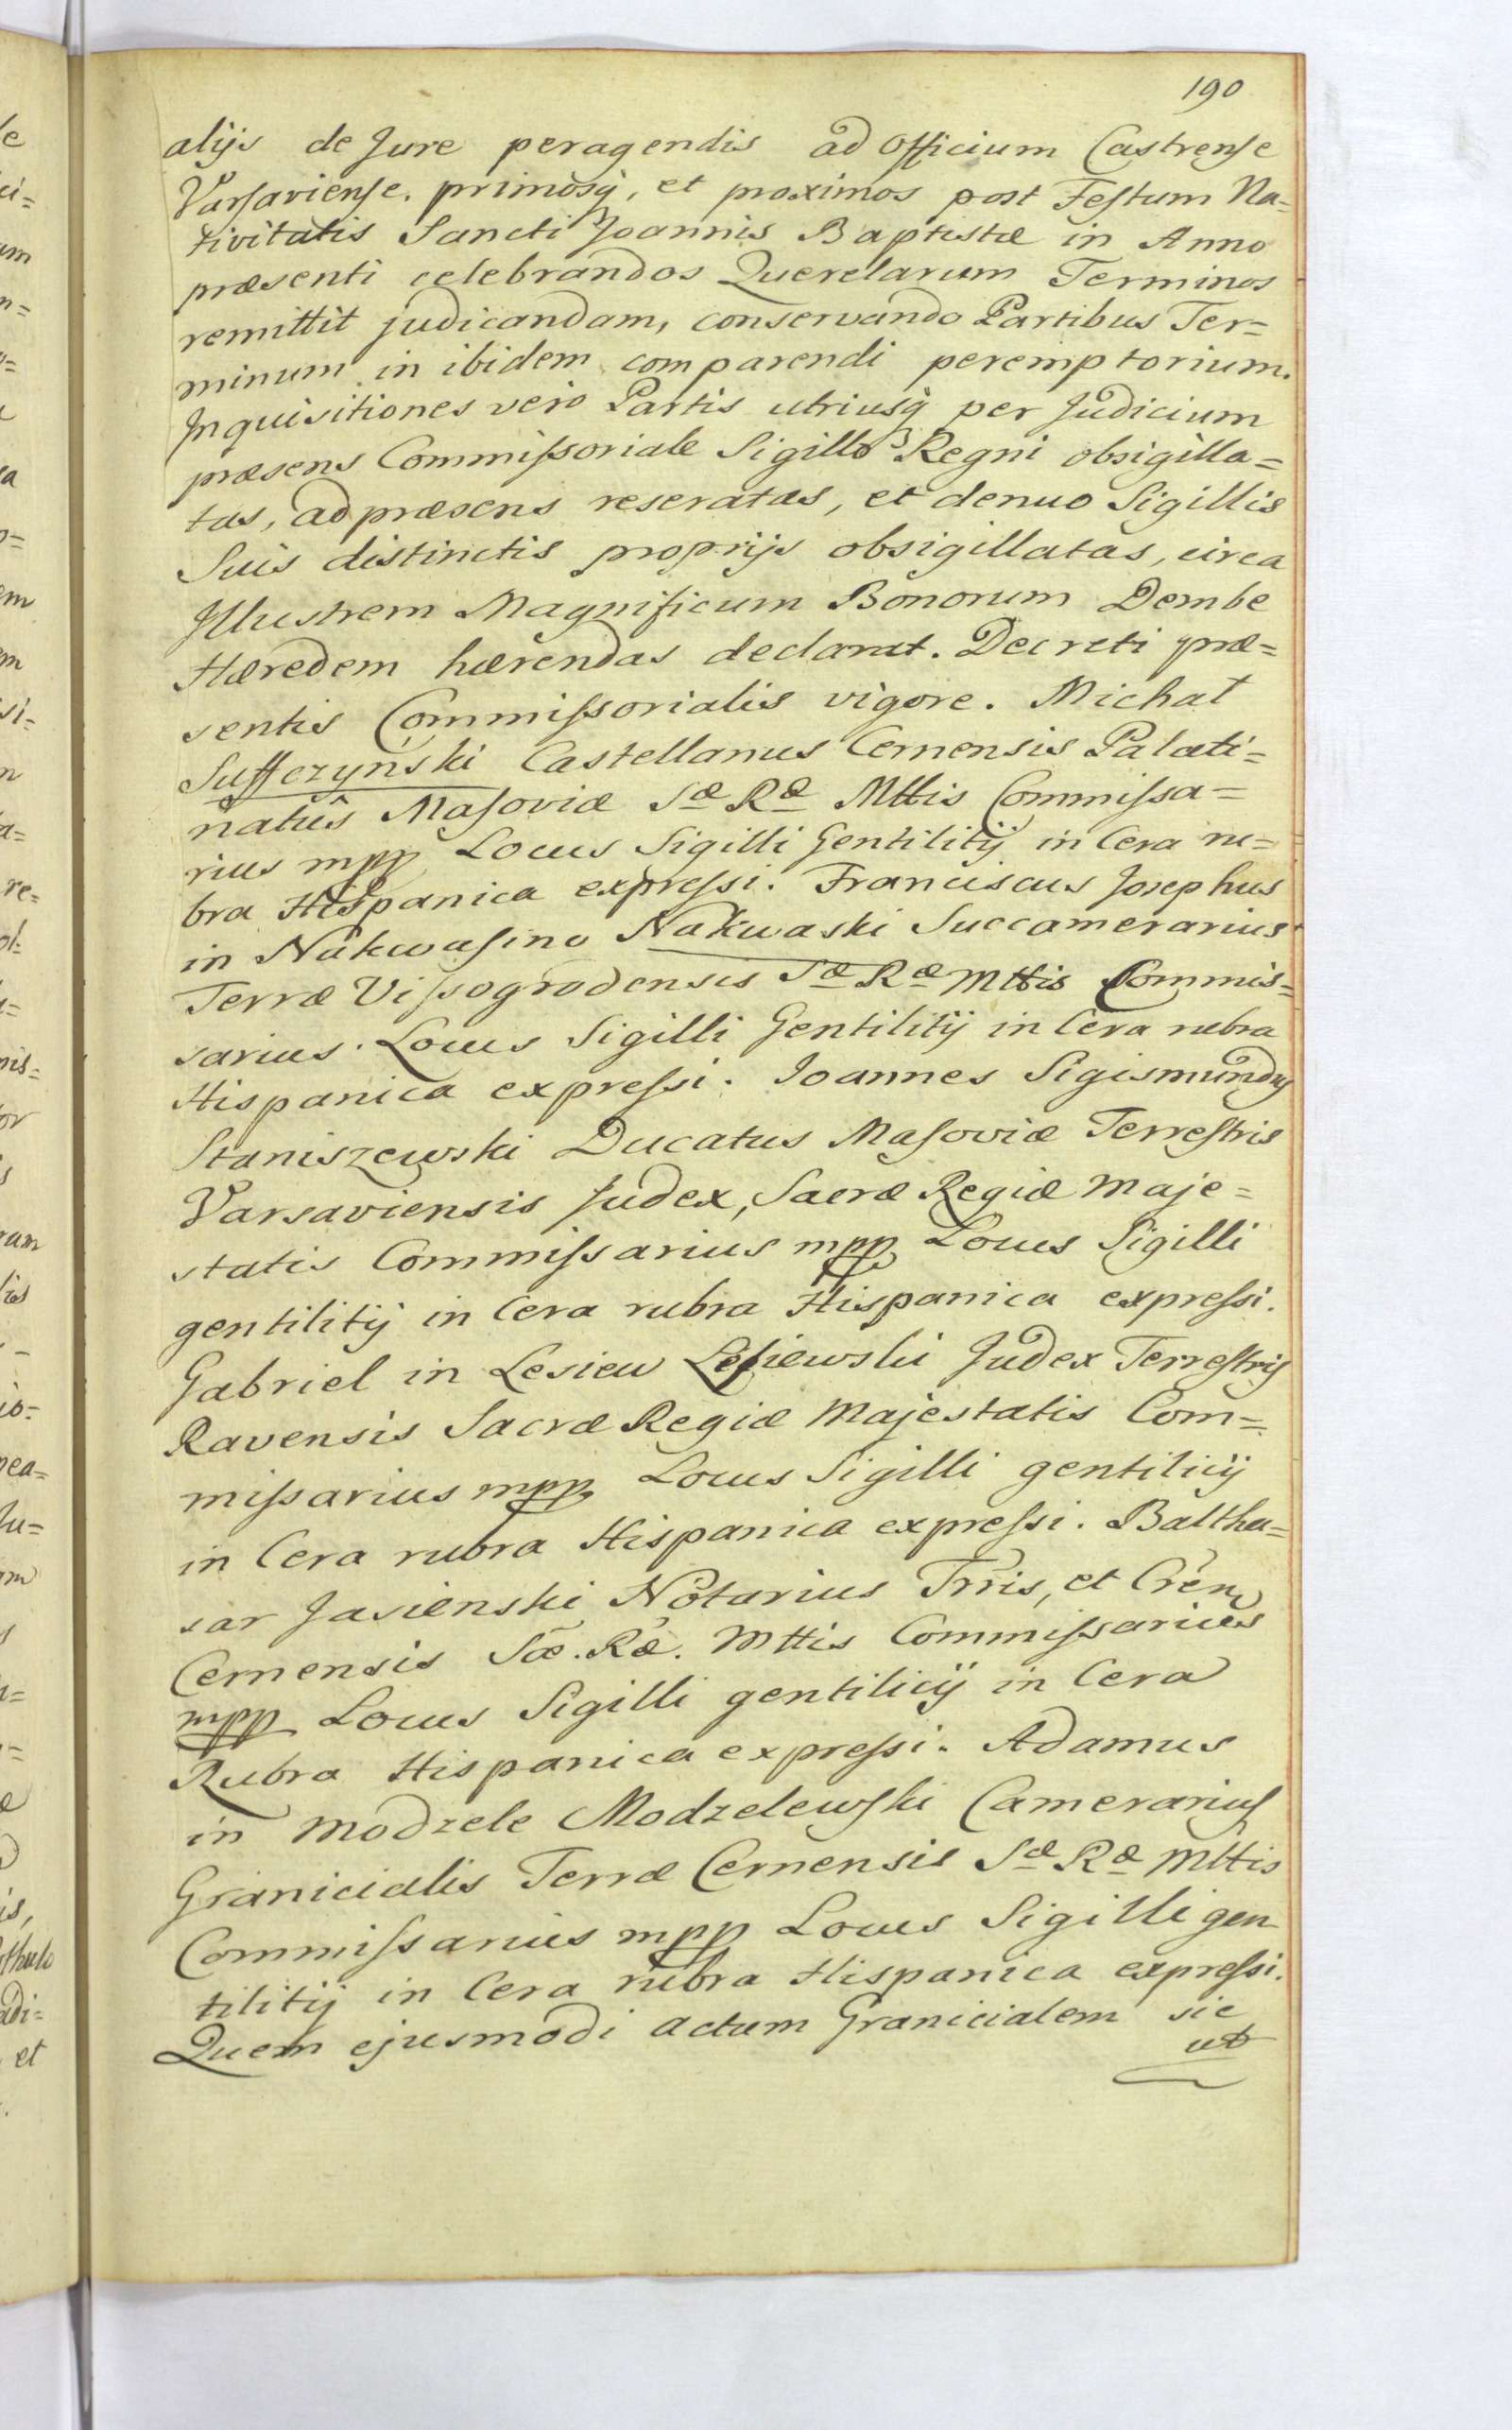 190
alijs de Jure peragendis ad Officium Castrense
Varsaviense. primosq́, et proximos post Festum Na=
tivitatis Sancti Joannis Baptistæ in Anno
præsenti celebrandos Querelarum Terminos
remittit judicandam, conservando Partibus Ter=
minum in ibidem comparendi peremptorium.
Inquisitiones vero Partis utriusq́ per Judicium
præsens Commissoriale Sigillo Regni obsigilla=
tas, ad præsens reseratas, et denuo Sigillis
Suis distinctis proprijs obsigillatas, circa
Illustrem Magnificum Bonorum Dembe
Hæredem hærendas declarat. Decreti præ=
sentis Commissorialis vigore. Michał
Suffczyński Castellanus Cernensis Palati=
natûs Masoviæ Sæ Ræ Mttis Commissa=
rius mpp Locus Sigilli Gentilitij in Cera ru=
bra Hispanica expressi. Franciscus Josephus
in Nakwasino Nakwaski Succamerarius
Terræ Vissogrodensis Sæ Ræ Mttis Commis=
sarius. Locus Sigilli Gentilitij in Cera rubra
Hispanica expressi. Joannes Sigismundus
Staniszewski Ducatus Masoviæ Terrestris
Varsaviensis Judex, Sacræ Regiæ Maje=
statis Commissarius mpp Locus Sigilli
gentilitij in Cera rubra Hispanica expressi.
Gabriel in Lesiew Lesiewski Judex Terrestris
Ravensis Sacræ Regiæ Majestatis Com=
missarius mpp Locus Sigilli gentilicij
in Cera rubra Hispanica expressi. Baltha=
sar Jasienski Notarius Trris, et Cren
Cernensis Sæ. Ræ. Mttis Commissarius
mpp Locus Sigilli gentilicij in Cera
Rubra Hispanica expressi. Adamus
in Modzele Modzelewski Camerarius
Granicialis Terræ Cernensis Sæ Ræ Mttis
Commissarius mpp Locus Sigilli gen
tilitij in Cera rubra Hispanica expressi.
Quem ejusmodi actum Granicialem sic
ut